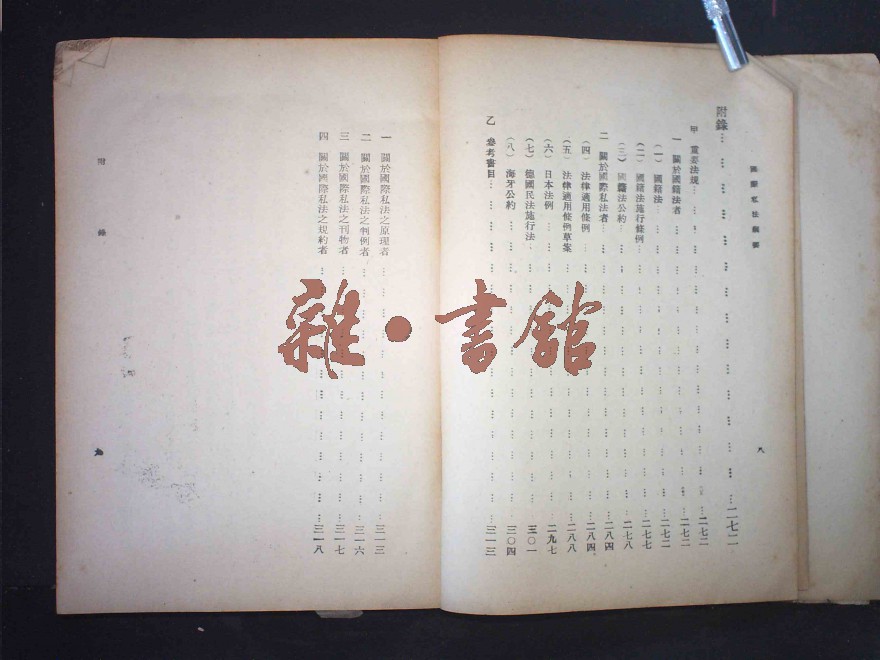 國際私法綱要
八
附錄……二七二
甲 重要法規……二七二
一 關於國籍法者……二七二
(一) 國籍法……二七二
(二) 國籍法施行條例……二七七
(三) 國籍法公約……二七八
二 關於國際私法者……二八四
(四) 法律適用條例……二八四
(五) 法律適用條例草案……二八八
(六) 日本法例……二九七
(七) 德國民法施行法……三〇一
(八) 海牙公約……三〇四
乙 參考書目……三一三
一 關於國際私法之原理者……三一三
二 關於國際私法之判例者……三一六
三 關於國際私法之刊物者……三一七
四 關於國際私法之規約者……三一八
附錄
九
雜·書館